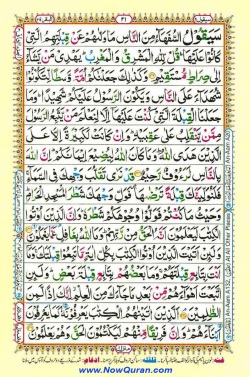 سَيَقُوْلُ السُّفَهَآءُ مِنَ النَّاسِ مَا وَلّٰىهُمْ عَنْ قِبْلَتِهِمُ الَّتِيْ
كَانُوْا عَلَيْهَا قُلْ لِّلّٰهِ الْمَشْرِقُ وَالْمَغْرِبُ يَهْدِيْ مَنْ يَّشَآءُ
اِلٰى صِرَاطٍ مُّسْتَقِيْمٍ وَكَذٰلِكَ جَعَلْنٰكُمْ اُمَّةً وَّسَطًا لِّتَكُوْنُوْا
شُهَدَآءَ عَلَى النَّاسِ وَيَكُوْنَ الرَّسُوْلُ عَلَيْكُمْ شَهِيْدًا وَمَا
جَعَلْنَا الْقِبْلَةَ الَّتِيْ كُنْتَ عَلَيْهَآ اِلَّا لِنَعْلَمَ مَنْ يَّتَّبِعُ الرَّسُوْلَ
مِمَّنْ يَّنْقَلِبُ عَلٰى عَقِبَيْهِ وَاِنْ كَانَتْ لَكَبِيْرَةً اِلَّا عَلَى
الَّذِيْنَ هَدَى اللّٰهُ وَمَا كَانَ اللّٰهُ لِيُضِيْعَ اِيْمَانَكُمْ اِنَّ اللّٰهَ
بِالنَّاسِ لَرَءُوْفٌ رَّحِيْمٌ قَدْ نَرٰى تَقَلُّبَ وَجْهِكَ فِي السَّمَآءِ
فَلَنُوَلِّيَنَّكَ قِبْلَةً تَرْضٰىهَا فَوَلِّ وَجْهَكَ شَطْرَ الْمَسْجِدِ الْحَرَامِ
وَحَيْثُ مَا كُنْتُمْ فَوَلُّوْا وُجُوْهَكُمْ شَطْرَهٗ وَاِنَّ الَّذِيْنَ اُوْتُوا
الْكِتٰبَ لَيَعْلَمُوْنَ اَنَّهُ الْحَقُّ مِنْ رَّبِّهِمْ وَمَا اللّٰهُ بِغَافِلٍ عَمَّا يَعْمَلُوْنَ
وَلَئِنْ اَتَيْتَ الَّذِيْنَ اُوْتُوا الْكِتٰبَ بِكُلِّ اٰيَةٍ مَّا تَبِعُوْا قِبْلَتَكَ وَمَآ
اَنْتَ بِتَابِعٍ قِبْلَتَهُمْ وَمَا بَعْضُهُمْ بِتَابِعٍ قِبْلَةَ بَعْضٍ وَلَئِنِ
اتَّبَعْتَ اَهْوَآءَهُمْ مِّنْ بَعْدِ مَا جَآءَكَ مِنَ الْعِلْمِ اِنَّكَ اِذًا لَّمِنَ
الظّٰلِمِيْنَ اَلَّذِيْنَ اٰتَيْنٰهُمُ الْكِتٰبَ يَعْرِفُوْنَهٗ كَمَا يَعْرِفُوْنَ
اَبْنَآءَهُمْ وَاِنَّ فَرِيْقًا مِّنْهُمْ لَيَكْتُمُوْنَ الْحَقَّ وَهُمْ يَعْلَمُوْنَ
www.NowQuran.com